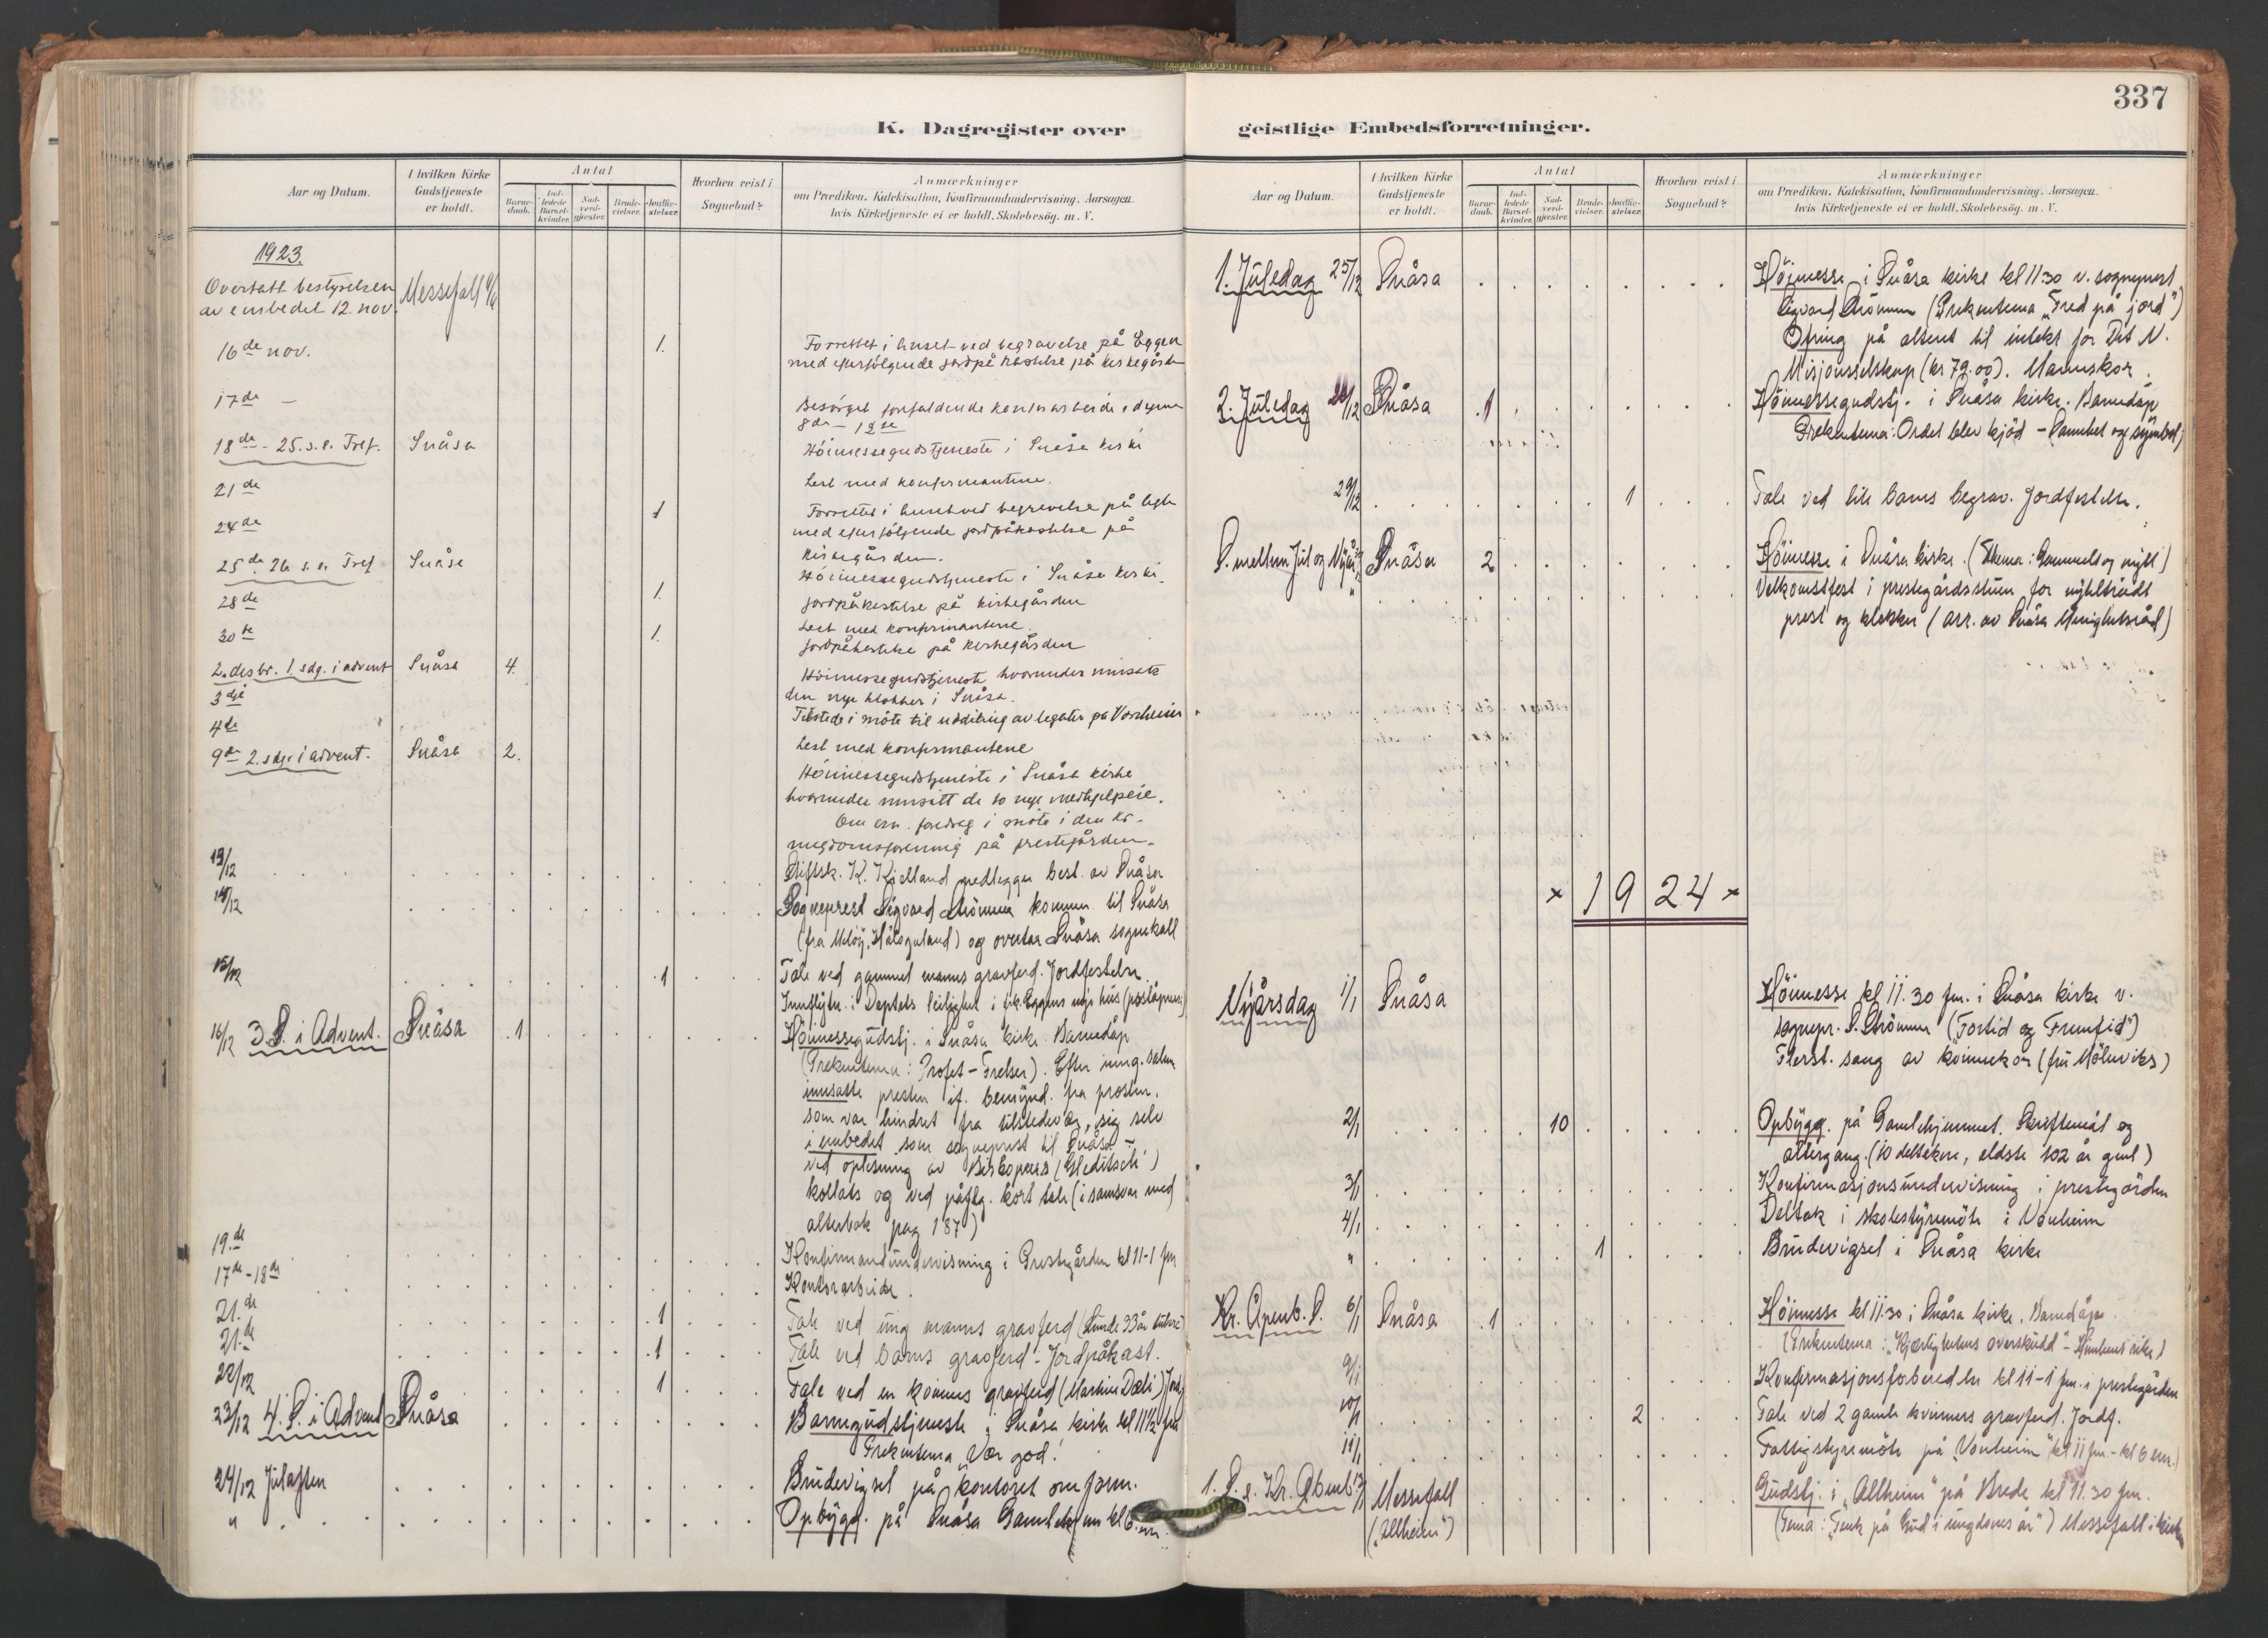 337
K. Dagregister over
Aar og Datum.
I hvilken Kirke
Gudstjeneste
er holdt.
Antal
Barne-
daab.
Ind-
ledede
Barsel-
kvinder.
Nad-
verd-
gjester.
Brude-
vielser.
Jordfæ-
stelser.
Hvorhen reist i
Sognebud?
Anmærkninger
om Prædiken. Katekisation, Konfirmandundervisning. Aarsagen.
hvis Kirketjeneste ei er holdt. Skolebesøg. m. V.
1923.
Overtatt bestyrelsen
av embedet 12. nov.
Messefall
16de nov.
1.
Forrettet i huset ved begravelse på Eggen
med efterfölgende jordpåkastelse på kirkegården
17de –
Besörget forefaldende kontorarbeide
8de – 12te
18de - 25. s. e. Tref.
Snåsa
Höimessegudstjeneste i Snåsa kirke
21de
Lest med konfirmantene.
24de
1
Forrettet i huset ved begravelse på
med efterfölgende jordpåkastelse på
kirkegården.
25de 26. s. e. Tref
Snåsa
Höimessegudstjeneste i Snåsa kirke
28de
1.
Jordpåkastelse på kirkegården
Lest med konfirmantene.
30te
1.
Jordpåkastelse på kirkegården
2. desbr. 1 sdg. i advent
Snåsa
4.
Höimessegudstjeneste hvorunder innsatte
den nye klokker i Snåsa.
3dje
Tilstede i möte til uddeling av legater på Vonheim
4de
Lest med konfirmantene
9de 2. sdg. i advent.
Snåsa
2.
Höimessegudstjeneste i Snåsa kirke
hvorunder innsatt de to nye medhjelpere.
Om em. foredrag i möte i den kr.
ungdomsforening på prestegården.
13/12
Stiftsk. K. Kjelland nedlegger best. av Snåsa
14/12
Sogneprest Sigvard Strömme kommer til Snåsa
(fra Melöy, Hålogaland) og overtar Snåsa sognekall
15/12
1
Tale ved gammel manns gravferd. Jordfestelse.
16/12 3. S. i Advent.
Snåsa
1
Höimessegudstj. i Snåsa kirke. Barnedåp
(Prekentema: Profet – Frelser). Efter inng. salme
innsatte presten if. bemynd. fra prosten,
som var hindret fra tilstedevær, sig selv
i embedet som sogneprest til Snåsa –
ved oplesning av Biskopens (Gleditsch)
kollats og ved påflg. kort tale (i samsvar med
alterbok pag 187)
19.de
Konfirmandundervisning i Prestegården kl 11-1 fm
17de-18de
Kontorarbeide.
21.de
1
Tale ved ung manns gravferd
21.de
1
Tale ved barns gravferd – Jordpåkast.
22/12
1
Tale ved en kvinnes gravferd
23/12 4. S. i Advent
Snåsa
Barnegudstjeneste i Snåsa kirke kl 11½ fm
Prekentema „Vær god!
24/12 Julaften
Brudevigsel på kontoret om form.
"
Opbygg. på Snåsa Gamlehjem kl 6 em.
geistlige Embedsforretninger.
Aar og Datum.
I hvilken Kirke
Gudstjeneste
er holdt.
Antal
Barne-
daab.
Ind-
ledede
Barsel-
kvinder.
Nad-
verd-
gjester.
Brude-
vielser.
Jordfæ-
stelser.
Hvorhen reist i
Sognebud?
Anmærkninger
om Prædiken. Katekisation, Konfirmandundervisning. Aarsagen.
hvis Kirketjeneste ei er holdt. Skolebesög. m. V.
1. Juledag 25/12
Snåsa
Höimesse i Snåsa kirke kl 11.30 v. sogneprest
Sigvard Strömme (Prekentema „Fred på jord")
Ofring på alteret til inntekt for Det N.
Misjonsselskap (kr 79.00). Mannskor.
2. Juledag 26/12
Snåsa
1
Höimessegudstj. i Snåsa kirke. Barnedåp
Prekentema: Ordet blev kjöd – Sannhet og symbol
29/12
1
Tale ved lite barns begrav. Jordfestelse.
S. mellem Jul og Nytår 30/12
Snåsa
2
Höimesse i Snåsa kirke. (Tema: Gammelt og nytt)
"
Velkomstfest i prestegårdsstuen for nytiltrådt
prest og klokker (arr. av Snåsa Menighetsråd)
× 1924 ×
Nyårsdag 1/1
Snåsa
Höimesse kl 11.30 fm. i Snåsa kirke v.
sognepr. S. Strömme („Fortid og Fremtid")
Flerst. sang av kvinnekor
2/1
10
Opbygg. på Gamlehjemmet. Skriftemål og
altergang. (10 deltakere, eldste 102 år gml)
3/1
Konfirmasjonsundervisning i prestegården
4/1
Deltok i skolestyremöte i Vonheim
"
1
Brudevigsel i Snåsa kirke
Kr. Åpenb. S. 6/1
Snåsa
1
Höimesse kl 11.30 i Snåsa kirke. Barnedåp
(Prekentema: „Kjærlighetens overskudd" – Himlens rike)
9/1
Konfirmasjonsforberedelse kl 11-1 fm. i prestegården
10/1
2
Tale ved 2 gamle kvinners gravferd. Jordf.
11/1
Fattigstyremöte på „Vonheim" (kl 11 fm - kl 6 em.)
1. S. e. Kr. Åbenb. 13/1
Messefall
(„Allheim")
Gudstj. i „Allheim" på Brede kl 11.30 fm.
(Tema: „Tenk på Gud i ungdoms år") Messefall i kirken